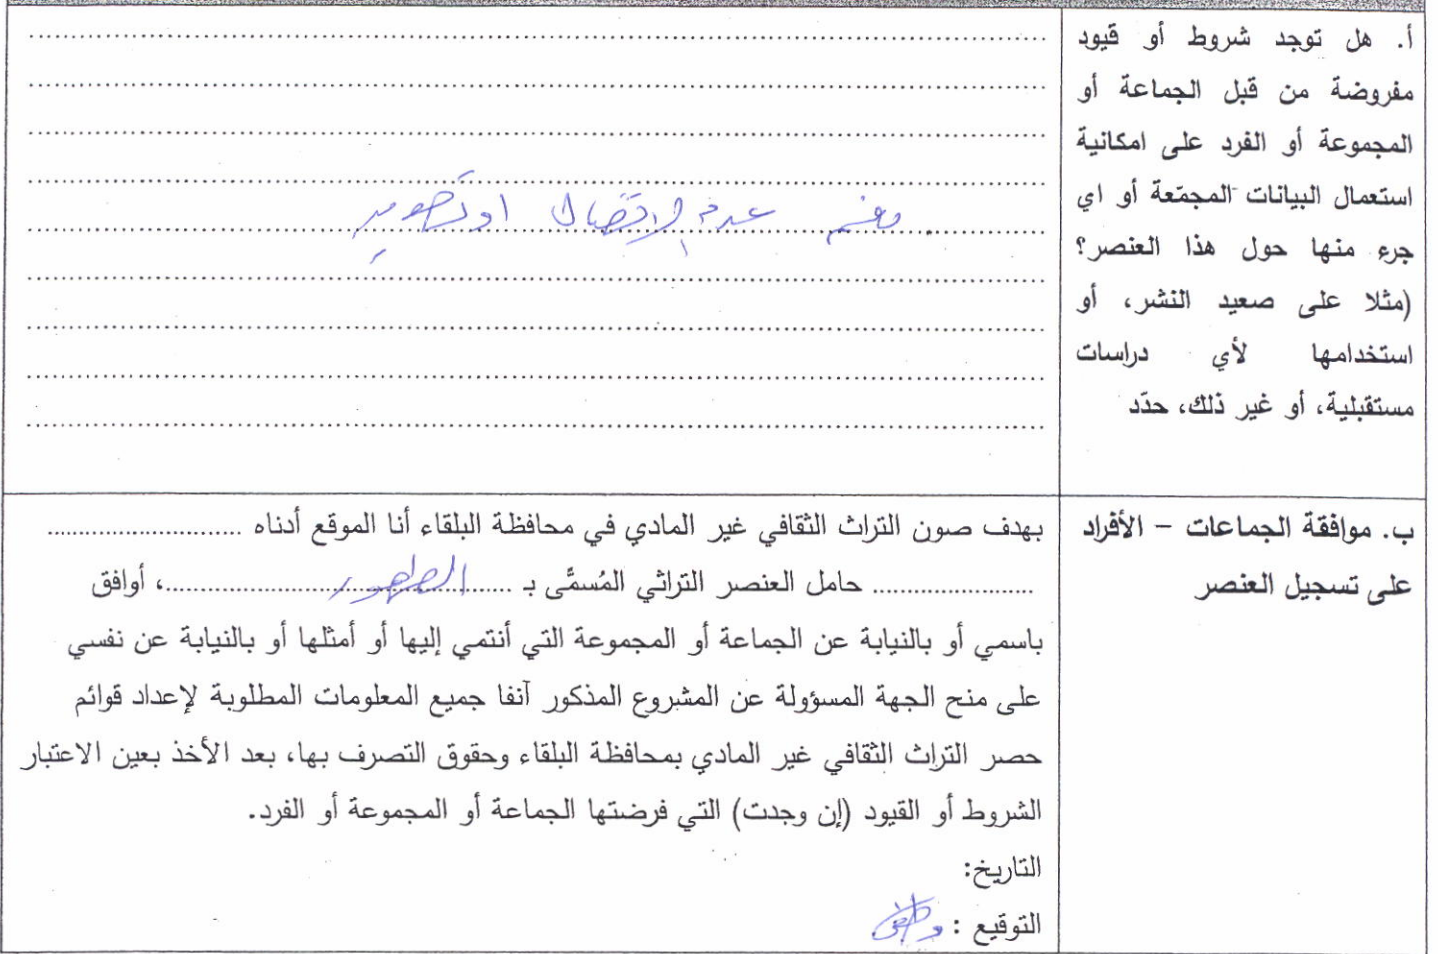 أ. هل توجد شروط أو قيود
مفروضة من قبل الجماعة أو
المجموعة أو الفرد على امكانية
استعمال البيانات المجمّعة أو اي
جرء منها حول هذا العنصر؟
(مثلا على صعيد النشر، أو
استخدامها لأي دراسات
مستقبلية، أو غير ذلك، حدّد
عدم الاتصال او تصوير
ب. موافقة الجماعات – الأفراد
على تسجيل العنصر
بهدف صون التراث الثقافي غير المادي في محافظة البلقاء أنا الموقع أدناه ............................
....................... حامل العنصر التراثي المُسمَّى بـ ........ الطهور ........، أوافق
باسمي أو بالنيابة عن الجماعة أو المجموعة التي أنتمي إليها أو أمثلها أو بالنيابة عن نفسي
على منح الجهة المسؤولة عن المشروع المذكور آنفا جميع المعلومات المطلوبة لإعداد قوائم
حصر التراث الثقافي غير المادي بمحافظة البلقاء وحقوق التصرف بها، بعد الأخذ بعين الاعتبار
الشروط أو القيود (إن وجدت) التي فرضتها الجماعة أو المجموعة أو الفرد.
التاريخ:
التوقيع :